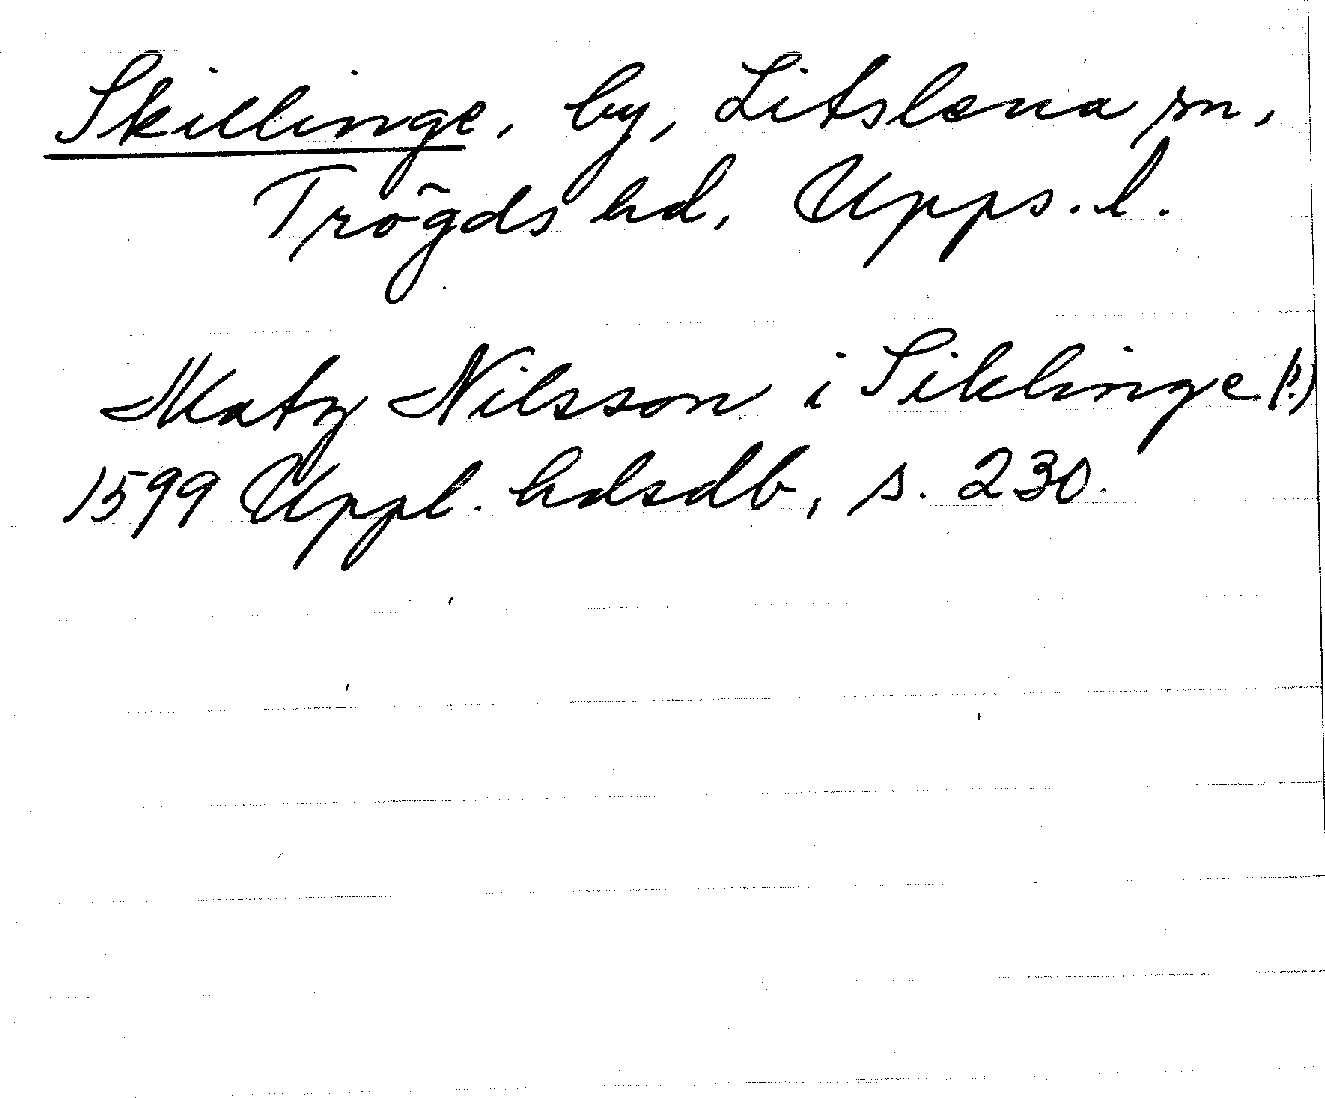 Skillinge, by, Litslena sn,
Trögds hd, Upps. l.
Matz Nilsson i Siklinge (!)
1599 Uppl. hdsdb, s. 230.